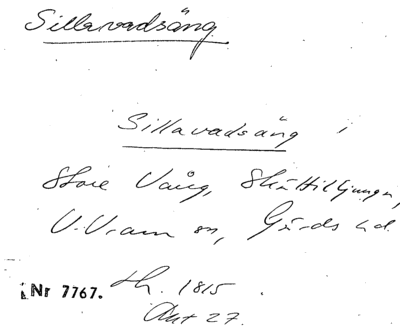 Sillavadsäng
Sillavadsäng i
Store Vång, Skättilljunga,
V. Vram sn, Gärds hd.
Nr 7767. th. 1815.
Akt 27.